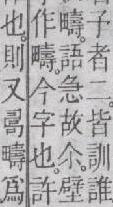 子者二。皆訓誰
疇。語急故尒。壁
作疇。今字也。許
也。則又𠷎疇爲